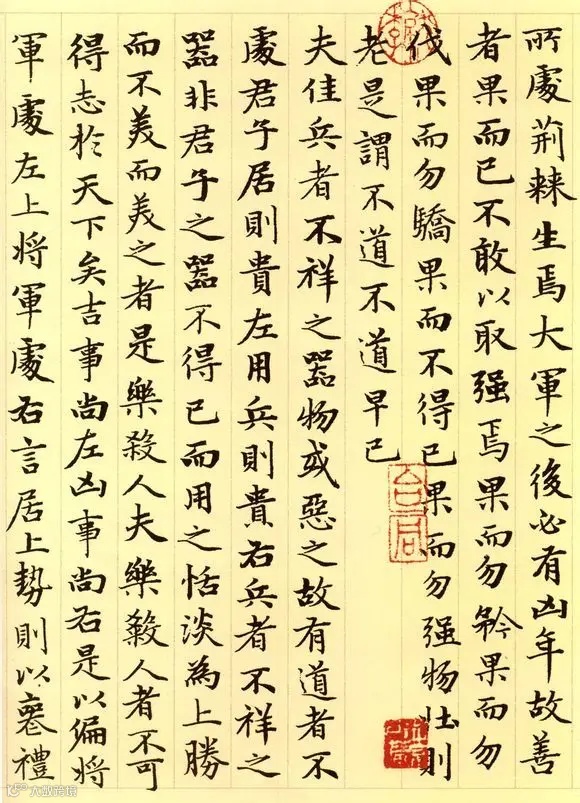 所處荆棘生焉大軍之後必有凶年故善
者果而已不敢以取强焉果而勿矜果而勿
伐果而勿驕果而不得已果而勿强物壯則
老是謂不道不道早已
夫佳兵者不祥之器物或惡之故有道者不
處君子居則貴左用兵則貴右兵者不祥之
器非君子之器不得已而用之恬淡為上勝
而不美而美之者是樂殺人夫樂殺人者不可
得志於天下矣吉事尚左凶事尚右是以偏將
軍處左上將軍處右言居上勢則以喪禮
大数跨境